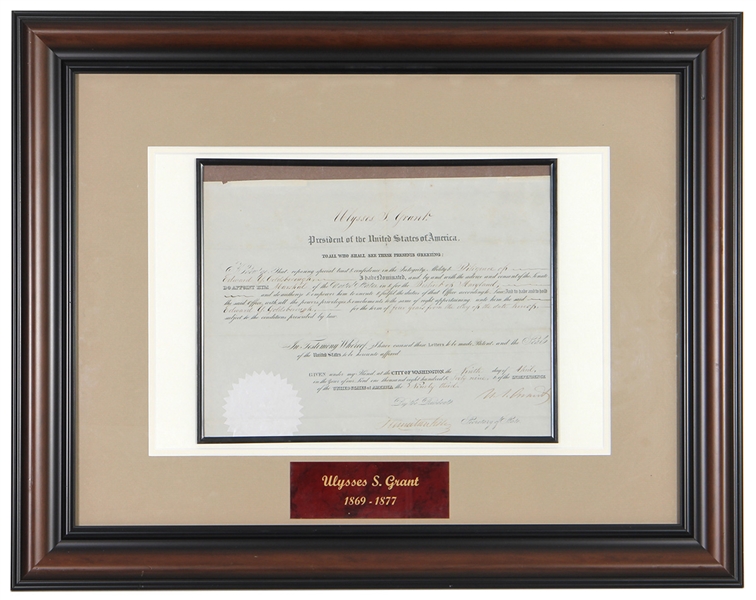 Ulysses S. Grant
President of the United States of America.
TO ALL WHO SHALL SEE THESE PRESENTS GREETING:
Know Ye That reposing special trust & confidence in the Integrity, Ability &
Edward Y. Goldsborough I have nominated, and by and with the advice and consent of the Senate
DO APPOINT HIM Marshal of the United States in & for the District of Maryland,
and do authorize & empower him to execute & fulfil the duties of that Office according to law; TO HAVE AND TO HOLD
the said Office, with all the powers, privileges & emoluments to the same of right appertaining unto him the said
Edward Y. Goldsborough for the term of four years from the day of the date hereof,
subject to the conditions prescribed by law.
In Testimony Whereof, I have caused these Letters to be made Patent, and the Seal
of the UNITED STATES to be hereunto affixed.
GIVEN under my Hand at the CITY OF WASHINGTON, the day of
in the Year of our Lord one thousand eight hundred & sixty nine & of the INDEPENDENCE
of the UNITED STATES OF AMERICA, the Ninety third
U. S. Grant
By the President
Hamilton Fish Secretary of State
Ulysses S. Grant
1869 - 1877